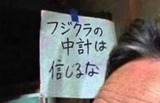 フジクラの
中計は
信じるな